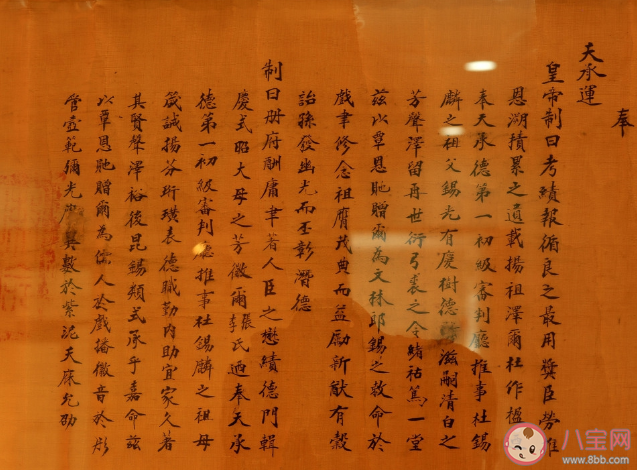 奉
天承運
皇帝制曰考績報循良之最用獎臣勞推
恩溯積累之遺載揚祖澤爾杜作楹
奉天承德第一初級審判廳推事杜錫
麟之祖父錫光有慶樹德滋嗣清白之
芳聲澤留再世衍弓裘之令緒祜篤一堂
茲以覃恩貤贈爾為文林郎錫之敕命於
戲聿修念祖膺茂典而益勵新猷有穀
詒孫發幽光而丕彰潛德
制曰冊府酬庸聿著人臣之懋績德門輯
慶式昭大母之芳徽爾張李氏廼奉天承
德第一初級審判廳推事杜錫麟之祖母
箴誡揚芬珩璜表德職勤內助宜家久著
其賢聲澤裕後昆錫類式承乎嘉命茲
以覃恩貤贈爾為孺人於戲播徽音於彤
管壼範彌光膺異數於紫泥天庥允劭
八宝网
www.8bb.com